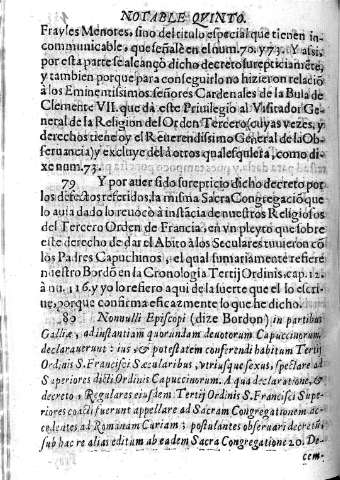 NOTABLE QVINTO.
Frayles Menores, sino del titulo especial que tienen in-
communicable, que señalè en el num. 70. y 73. Y assi,
por esta parte se alcançò dicho decreto surepticiamẽte,
y tambien porque para conseguirlo no hizieron relaciõ
à los Eminentissimos señores Cardenales de la Bula de
Clemente VII. que dà este Privilegio al Visitador Ge-
neral de la Religion del Orden Tercero (cuyas vezes, y
derechos tiene oy el Reuerendissimo General de la Ob-
seruancia) y excluye del à otros qualesquiera, como di-
xe num. 73.
79 Y por auer sido surepticio dicho decreto por
los defectos referidos, la misma Sacra Congregaciõ que
lo auia dado lo reuocò à instãcia de nuestros Religiosos
del Tercero Orden de Francia, en vn pleyto que sobre
este derecho de dar el Abito à los Seculares tuuieron cõ
los Padres Capuchinos, el qual sumariamente refiere
nuestro Bordõ en la Cronologia Tertij Ordinis, cap. 12.
à nu. 116. y yo lo refiero aqui de la suerte que el lo escri-
ue, porque confirma eficazmente lo que he dicho.
80 Nonnulli Episcopi (dize Bordon) in partibus
Galliæ, ad instantiam quorundam deuotorum Capuccinorum,
declarauerunt: ius, & potestatem conferendi habitum Tertij
Ordinis S. Francisci Sæcularibus, vtriusque sexus, spectare ad
Superiores dicti Ordinis Capuccinorum. A qua declaratione, &
decreto, Regulares eiusdem Tertij Ordinis S. Francisci Supe-
riores coacti fuerunt appellare ad Sacram Congregationem ac-
cedentes ad Romanam Curiam; postulantes obseruari decretũ,
sub hac re alias editum ab eadem Sacra Congregatione 20. De-
cem-